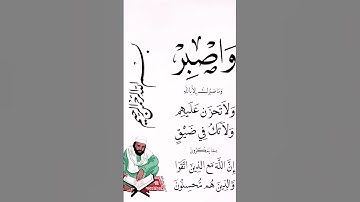 وَاصْبِرْ
وَمَا صَبْرُكَ إِلَّا بِاللَّهِ
وَلَا تَحْزَنْ عَلَيْهِمْ
وَلَا تَكُ فِي ضَيْقٍ
مِمَّا يَمْكُرُونَ
إِنَّ اللَّهَ مَعَ الَّذِينَ اتَّقَوا
وَالَّذِينَ هُم مُّحْسِنُونَ
بسم الله الرحمن الرحيم